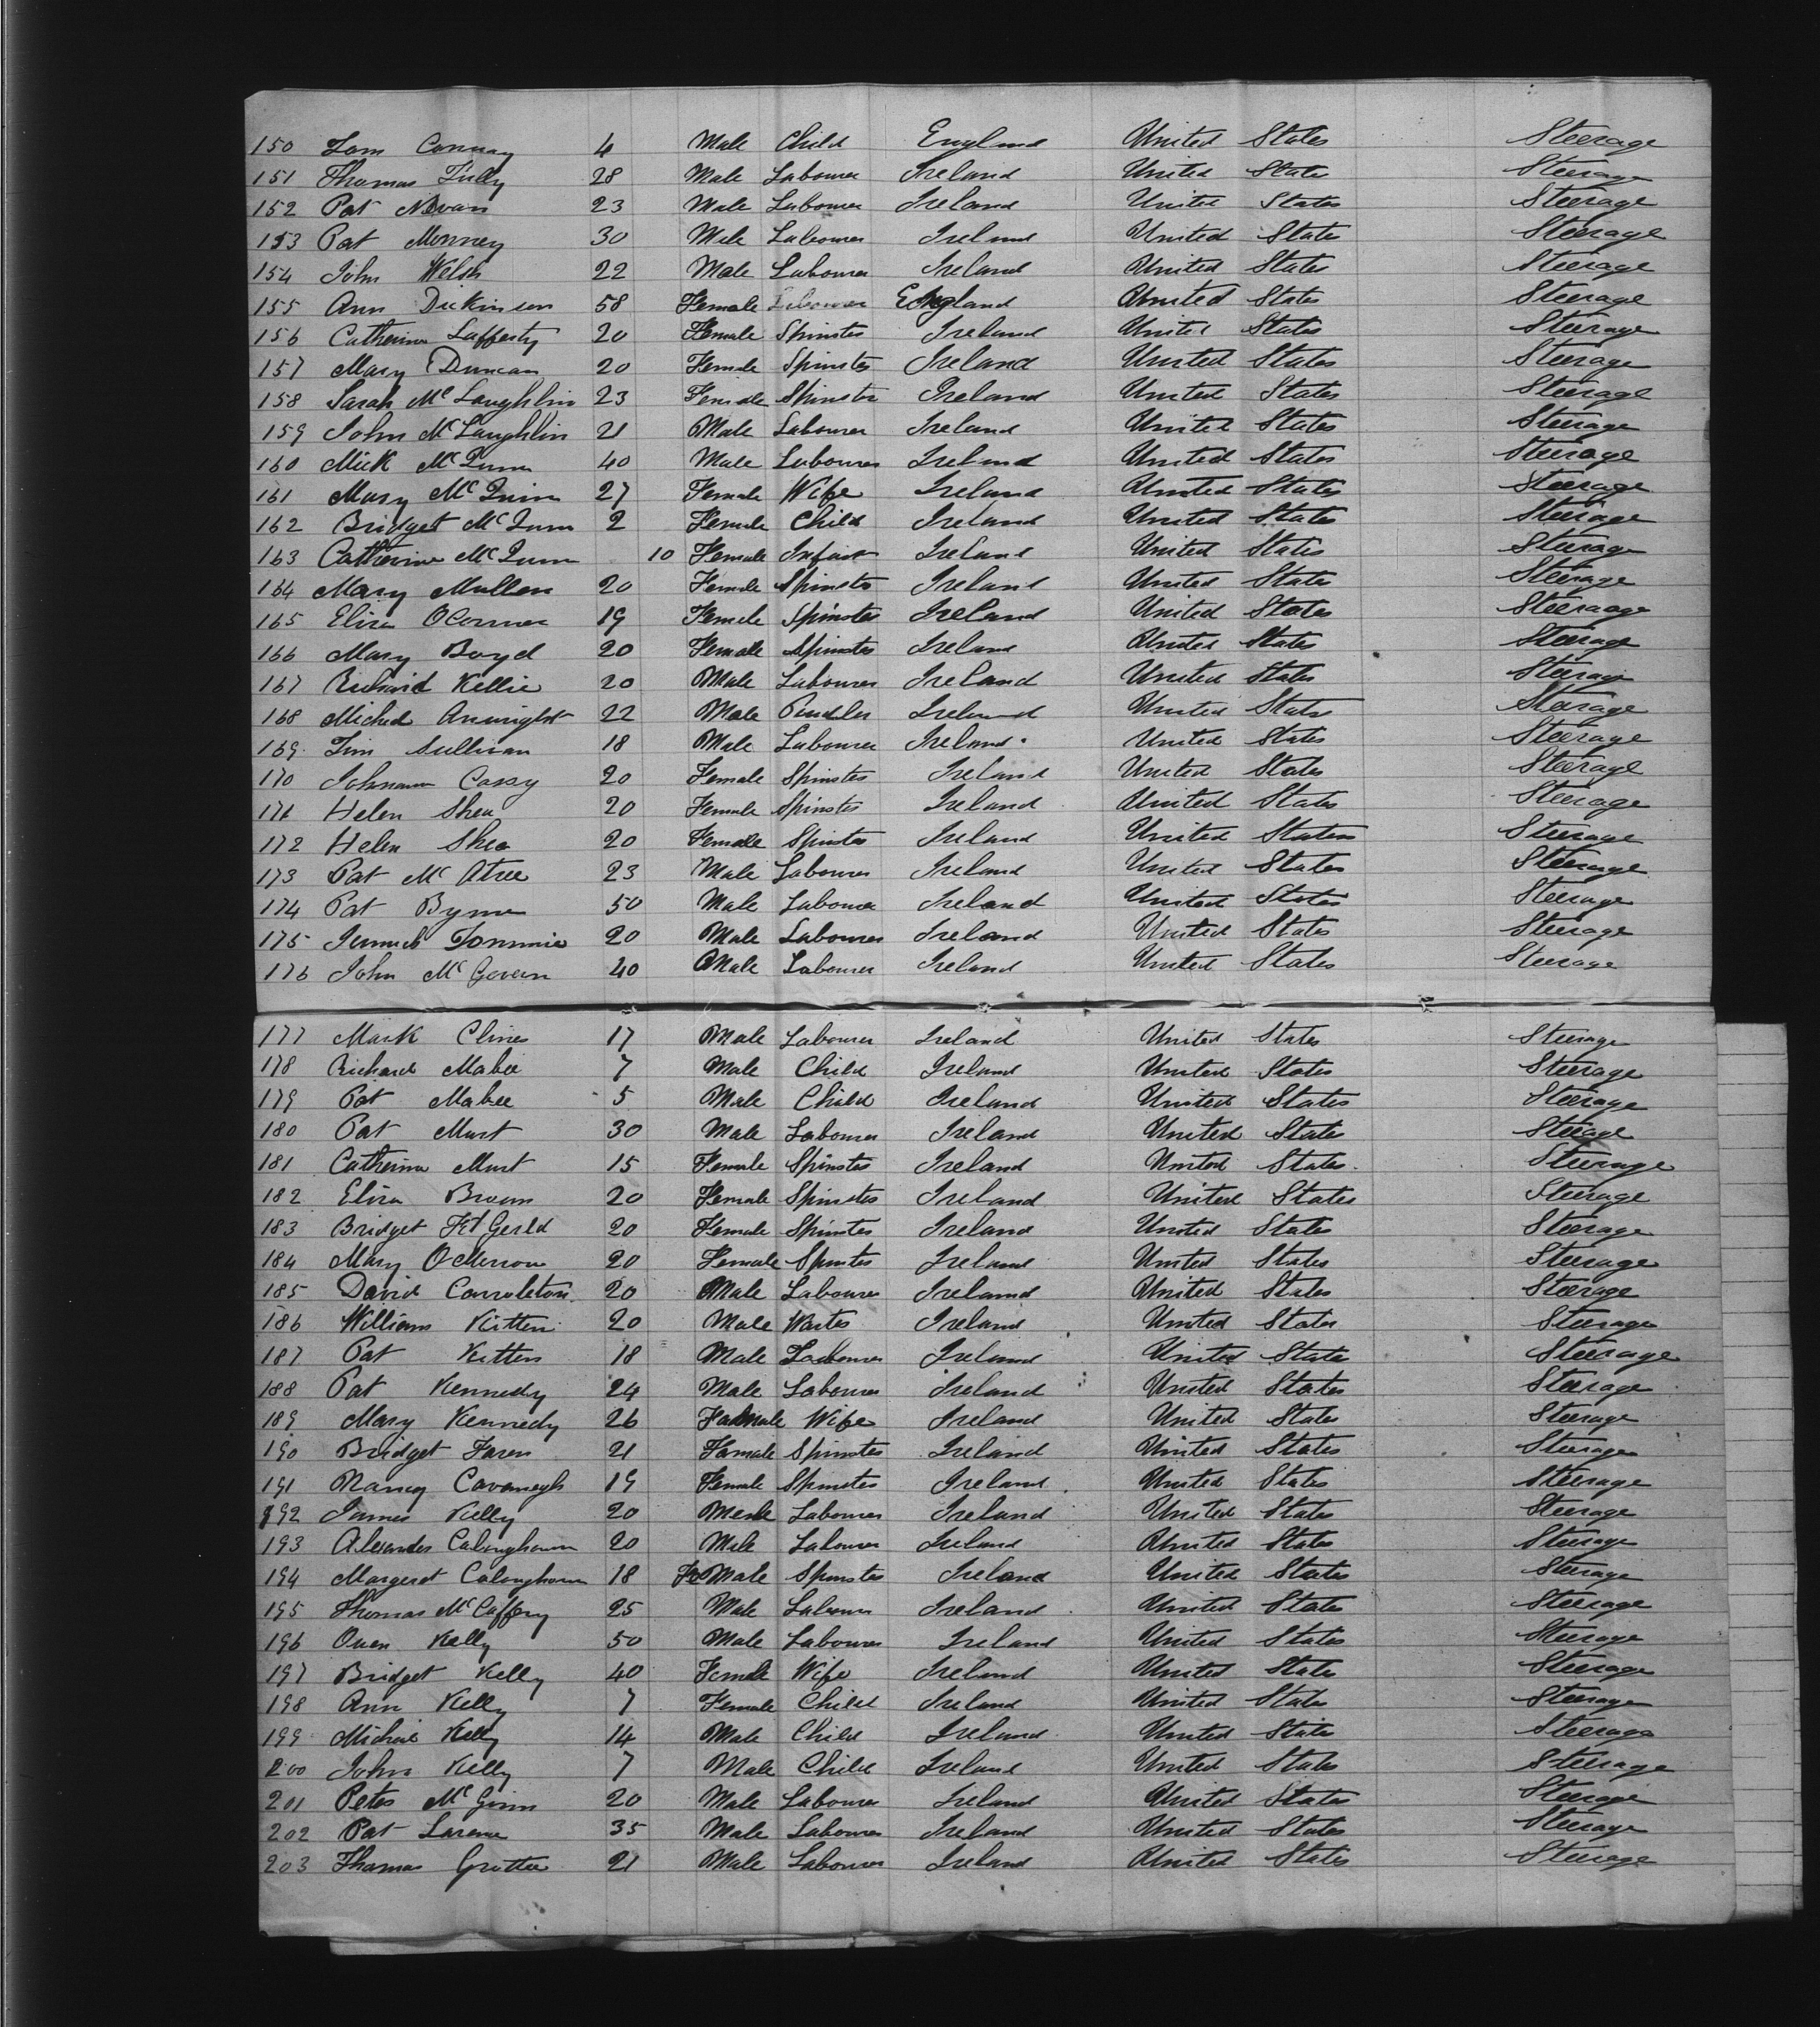 150 Tom Conway 4 Male Child England United States Steerage
151 Thomas Tully 28 Male Labourer Ireland United States Steerage
152 Pat 23 Male Labourer Ireland United States Steerage
153 Pat Monney 30 Male Labourer Ireland United States Steerage
154 John Welsh 22 Male Labourer Ireland United States Steerage
155 Ann Dickinson 58 Female England United States Steerage
156 Catherine Lafferty 20 Female Spinster Ireland United States Steerage
157 Mary Duncan 20 Female Spinster Ireland United States Steerage
158 Sarah McLaughlin 23 Female Spinster Ireland United States Steerage
159 John McLaughlin 21 Male Labourer Ireland United States Steerage
160 Mick McQuinn 40 Male Labourer Ireland United States Steerage
161 Mary McQuinn 27 Female Wife Ireland United States Steerage
162 Bridget McQuinn 2 Female Child Ireland United States Steerage
163 Catherine McQuinn 10 Female Infant Ireland United States Steerage
164 Mary Mullen 20 Female Spinster Ireland United States Steerage
165 Eliza OConnor 19 Female Spinster Ireland United States Steeraage
166 Mary Boyd 20 Female Spinster Ireland United States Steerage
167 Richard Kellie 20 Male Labourer Ireland United States Steerage
168 Michael Anwright 22 Male Ireland United States Steerage
169 Tim Sullivan 18 Male Labourer Ireland United States Steerage
170 Johnanna Casey 20 Female Spinster Ireland United States Steerage
171 Helen Shea 20 Female Spinster Ireland United States Steerage
172 Helen Shea 20 Female Spinster Ireland United States Steerage
173 Pat McAtree 23 Male Labourer Ireland United States Steerage
174 Pat Byrne 50 Male Labourer Ireland United States Steerage
175 Tommie 20 Male Labourer Ireland United States Steerage
176 John McGovern 40 Male Labourer Ireland United States Steerage
177 Mark Clines 17 Male Labourer Ireland United States Steerage
178 Richard Mabee 7 Male Child Ireland United States Steerage
179 Pat Mabee 5 Male Child Ireland United States Steerage
180 Pat Murt 30 Male Labourer Ireland United States Steeage
181 Catherine Murt 15 Female Spinster Ireland United States Steerage
182 Eliza Brown 20 Female Spinster Ireland United States Steerage
183 Bridget FitGerld 20 Female Spinster Ireland United States Steerage
184 Mary 20 Female Spinster Ireland United States Steerage
185 David Carroleton 20 Male Labourer Ireland United States Steerage
186 William Kitten 20 Male Waiter Ireland United States Steerage
187 Pat Kitten 18 Male Labourer Ireland United States Steerage
188 Pat Kennedy 24 Male Labourer Ireland United States Steerage
189 Mary Kennedy 26 Female Wife Ireland United States Steerage
190 Bridget Faren 21 Famale Spinster Ireland United States Steerage
191 Nancy Cavanegh 19 Female Spinster Ireland United States Steerage
192 James Kelly 20 Male Labourer Ireland United States Steerage
193 Alexander Caloughoun 20 Male Labourer Ireland United States Steerage
194 Margeret Caloughoun 18 FeMale Spinster Ireland United States Steerage
195 Thomas McCaffery 25 Male Labourer Ireland United States Steerage
196 Owen Kelly 50 Male Labourer Ireland United States Steerage
197 Bridget Kelly 40 Female Wife Ireland United States Steerage
198 Ann Kelly 7 Female Child Ireland United States Steerage
199 Micheal Kelly 14 Male Child Ireland United States Steerage
200 John Kelly 7 Male Child Ireland United States Steerage
201 Peter McGinn 20 Male Labourer Ireland United States Steerage
202 Pat 35 Male Labourer Ireland United States Steerage
203 Thomas Grattee 21 Male Labourer Ireland United States Steerage